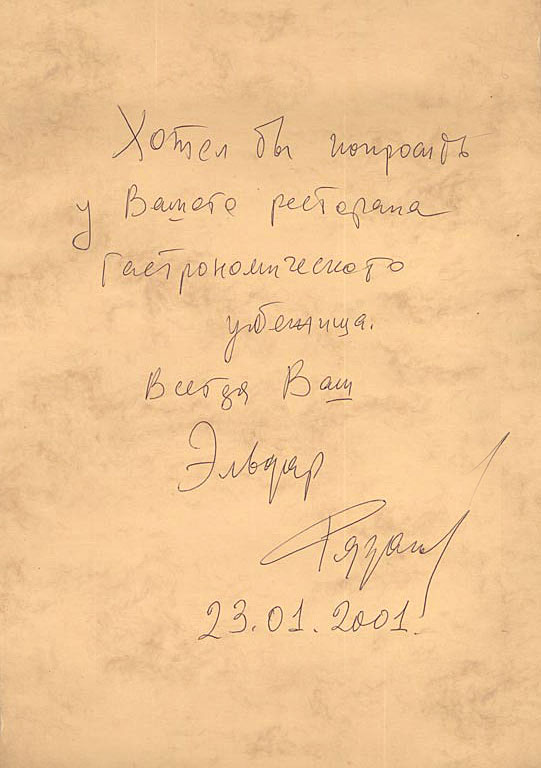 Хотел бы попросить
у Вашего ресторана
гастрономического
убежища.
Всегда Ваш
Эльдар
Рязанов
23.01.2001.